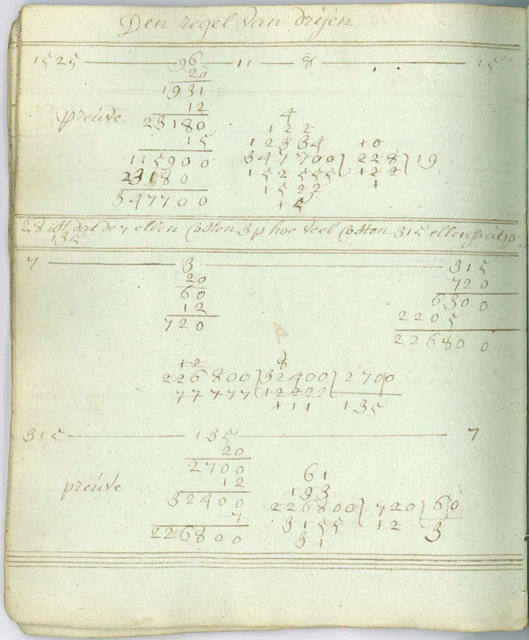 Den regel van drijen
1525 — 96 11 — 8 — 15
20
1931
12
preúve 23180
15
115900
23180
347700
4
122
12334 +0
347700) 228) 19
152555 122
1522 +
12
28 ist dat de 7 ellen Costen 3 p hoe veel Costen 315 ellen
135
7 — 3 — 315
20
60
12
720
720
6300
2205
226800
+2 8
226800) 32400) 2700
77777 (12222 135
+11
315 — 135 — 7
20
2700
12
preúve 32400
7
226800
61
193
226800) 720) 60
3155 +2 3
31